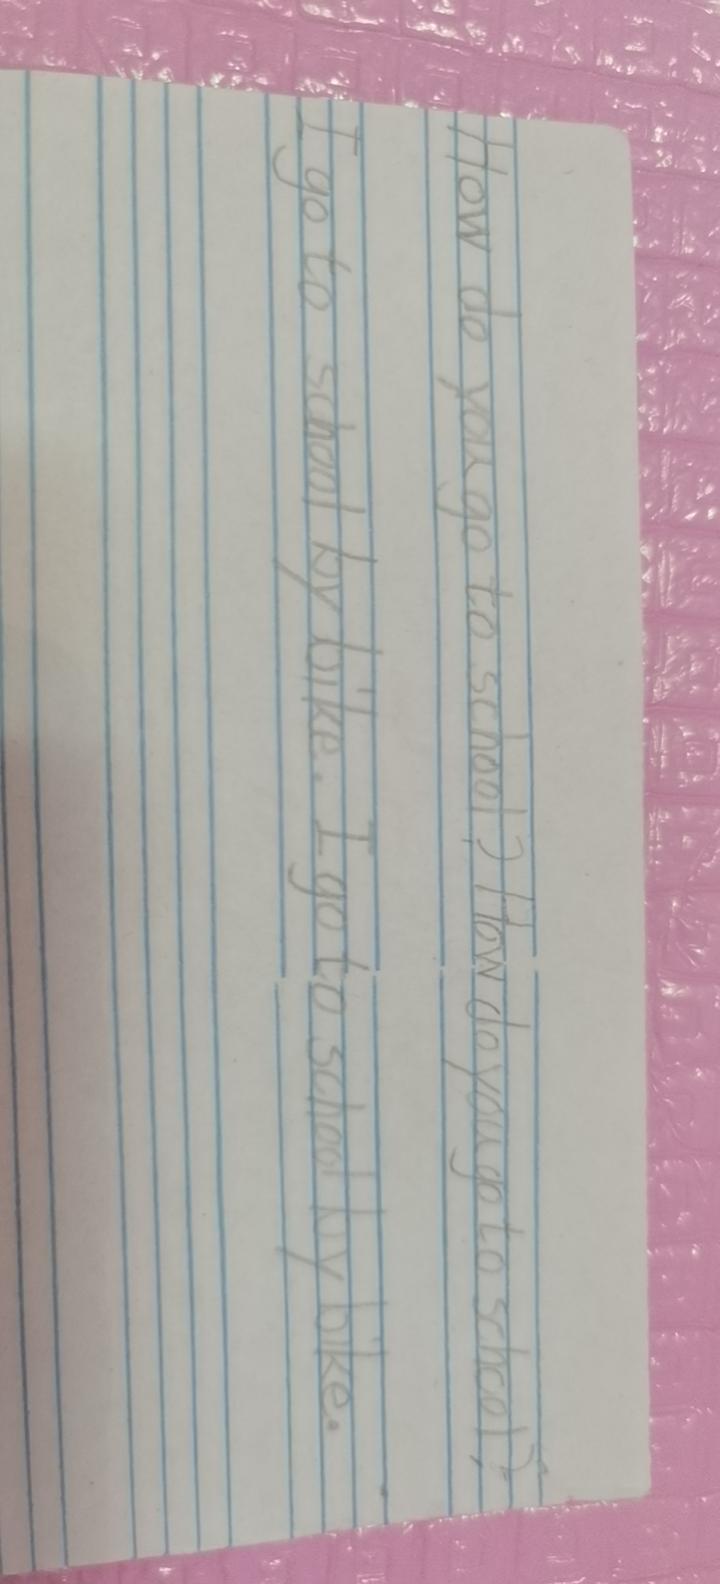 How do you go to school? How do you go to school?
I go to school by bike. I go to school by bike.